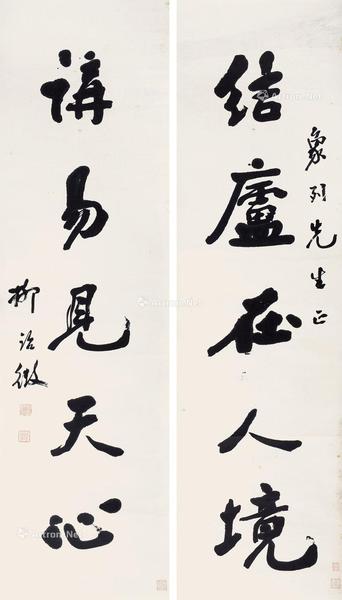 象列先生正
結廬在人境
講易見天心
柳詒徵